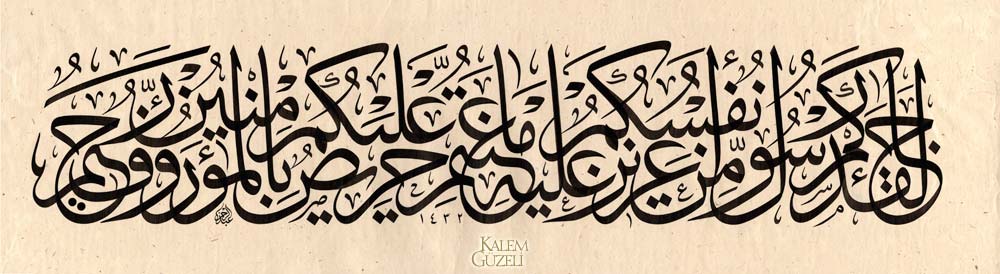 لَقَدْ جَاءَكُمْ رَسُولٌ مِنْ أَنْفُسِكُمْ عَزِيزٌ عَلَيْهِ مَا عَنِتُّمْ حَرِيصٌ عَلَيْكُمْ بِالْمُؤْمِنِينَ رَؤُوفٌ رَحِيمٌ
١٤٣٢
KALEM
GÜZELİ